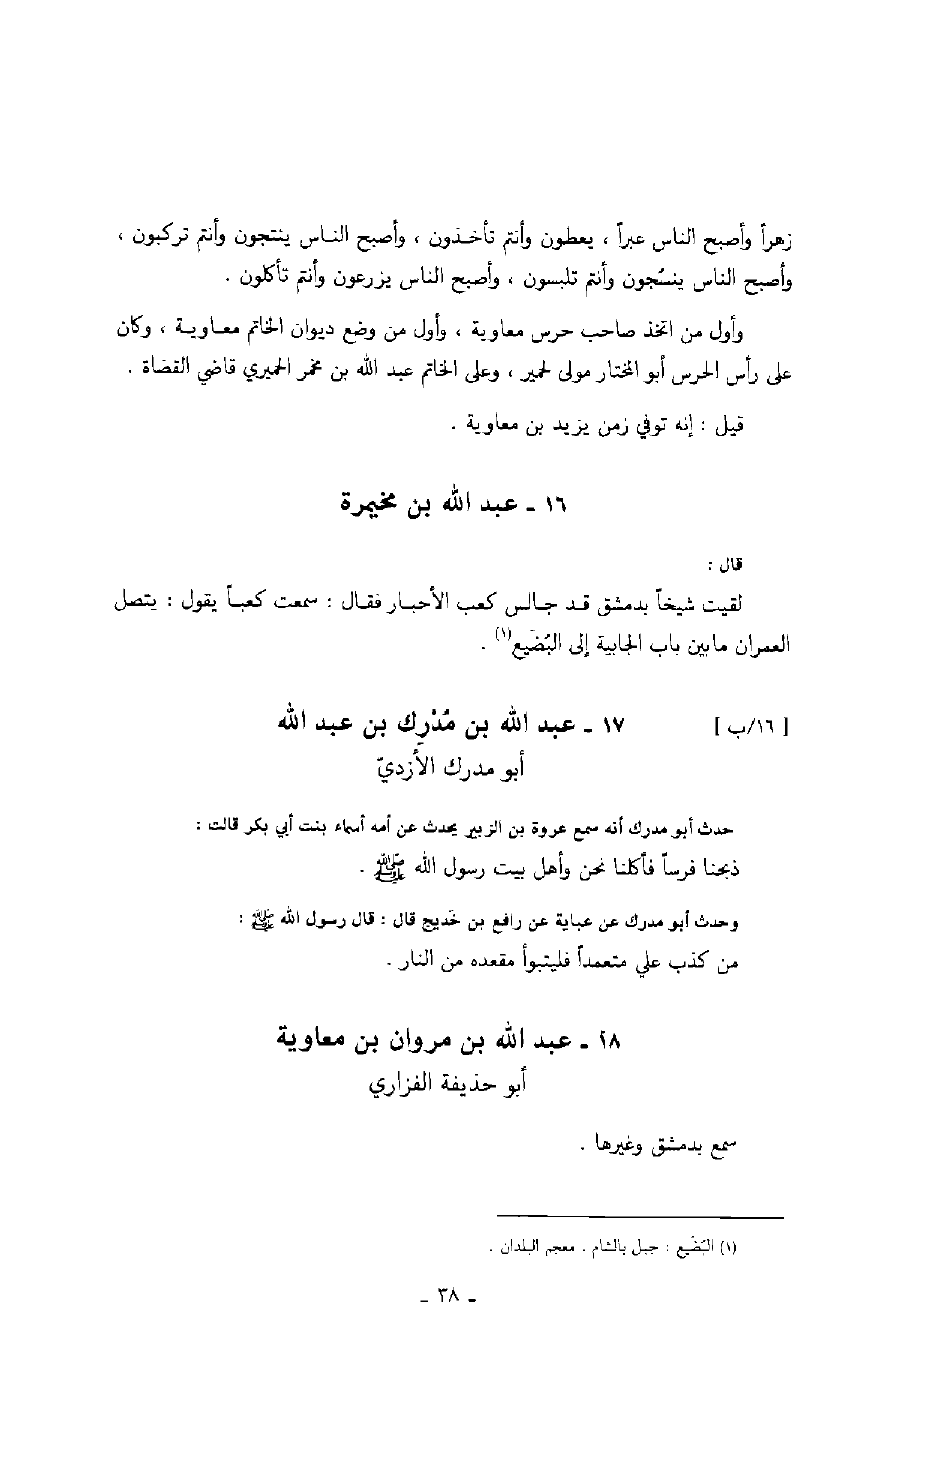 زهراً وأصبح الناس عبراً ، يعطون وأنتم تأخذون ، وأصبح الناس ينتجون وأنتم تركبون ،
وأصبح الناس ينسُجون وأنتم تلبسون ، وأصبح الناس يزرعون وأنتم تأكلون .
وأول من اتخذ صاحب حرس معاوية ، وأول من وضع ديوان الخاتم معاوية ، وكان
على رأس الحرس أبو المختار مولى لحمير ، وعلى الخاتم عبد الله بن محمر الحميري قاضي القضاة .
قيل : إنه توفي زمن يزيد بن معاوية .
١٦ - عبد الله بن مخيمرة
قال :
لقيت شيخاً بدمشق قد جالس كعب الأحبار فقال : سمعت كعباً يقول : يتصل
العمران مابين باب الجابية إلى البُضَيع(١) .
[ ١٦/ب ] ١٧ - عبد الله بن مُدْرِك بن عبد الله
أبو مدرك الأزديّ
حدث أبو مدرك أنه سمع عروة بن الزبير يحدث عن أمه أسماء بنت أبي بكر قالت :
ذبحنا فرساً فأكلنا نحن وأهل بيت رسول الله ﷺ .
وحدث أبو مدرك عن عباية عن رافع بن خَديج قال : قال رسول الله ﷺ :
من كذب علي متعمداً فليتبوأ مقعده من النار .
١٨ - عبد الله بن مروان بن معاوية
أبو حذيفة الفزاري
سمع بدمشق وغيرها .
(١) البُضَيع : جبل بالشام . معجم البلدان .
- ٣٨ -